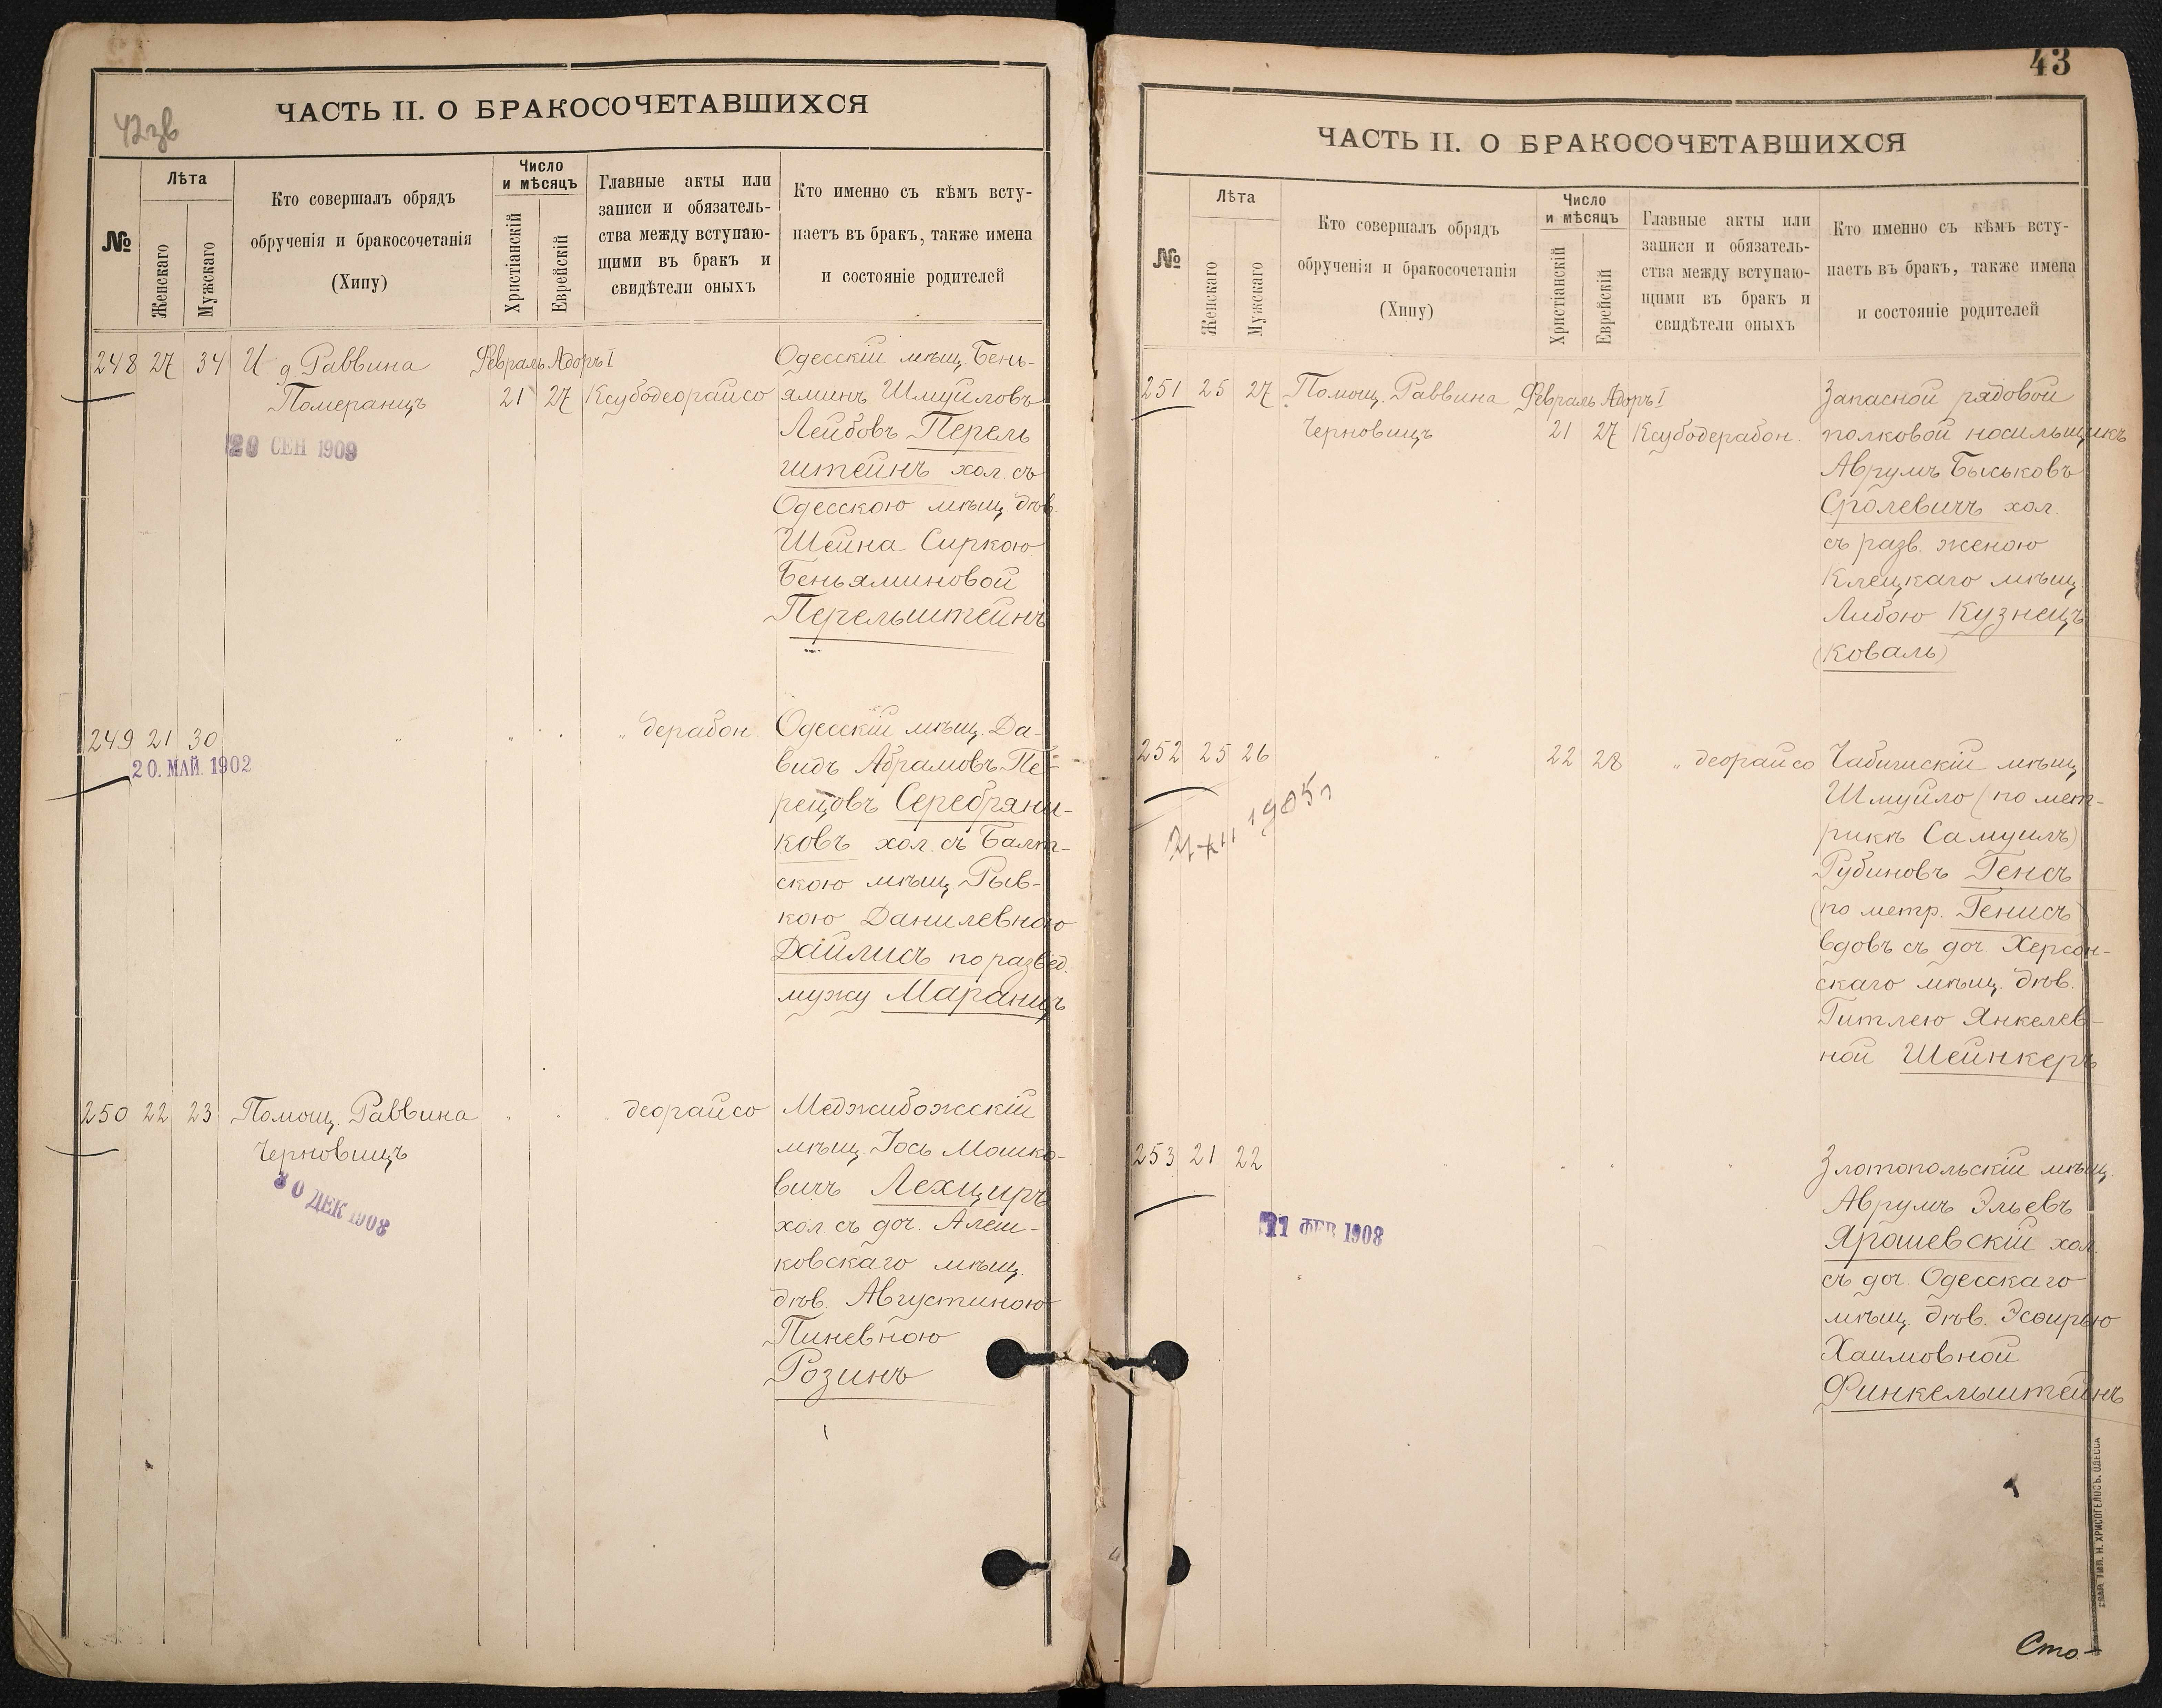 42зв
ЧАСТЬ II. О БРАКОСОЧЕТАВШИХСЯ
№
Лѣта
Женскаго
Мужскаго
Кто совершалъ обрядъ
обрученія и бракосочетанія
(Хипу)
Число
и мѣсяцъ
Христіанскій
Еврейскій
Главные акты или
записи и обязатель-
ства между вступаю-
щими въ бракъ и
свидѣтели оныхъ
Кто именно съ кѣмъ всту-
паетъ въ бракъ, также имена
и состояніе родителей
248 27 34 И д. Раввина Февраль Адоръ I Одесскій мѣщ. Бень-
Померанцъ 21 27 Ксубодеорайсо яминъ Шмуйловъ
Лейбовъ Перель
20 СЕН 1909
штейнъ хол. съ
Одесскою мѣщ. дѣв.
Шейна Сиркою
Беньяминовой
Перельштейнъ
249 21 30 " " " " " дерабон. Одесскій мѣщ. Да-
20. МАЙ. 1902
видъ Абрамовъ Пе-
рецовъ Серебряни-
ковъ хол. съ Балт-
скою мѣщ. Рыв-
кою Данилевною
Дайлисъ по развед.
мужу Маранцъ
250 22 23 Помощ. Раввина " " " деорайсо Меджибожскій
Черновицъ мѣщ. Іось Мошко-
30 ДЕК 1908
вичъ Лехциръ
хол. съ доч. Алеш-
ковскаго мѣщ.
дѣв. Августиною
Пиневною
Розинъ
43
ЧАСТЬ II. О БРАКОСОЧЕТАВШИХСЯ
№
Лѣта
Женскаго
Мужскаго
Кто совершалъ обрядъ
обрученія и бракосочетанія
(Хипу)
Число
и мѣсяцъ
Христіанскій
Еврейскій
Главные акты или
записи и обязатель-
ства между вступаю-
щими въ бракъ и
свидѣтели оныхъ
Кто именно съ кѣмъ всту-
паетъ въ бракъ, также имена
и состояніе родителей
251 25 27 Помощ. Раввина Февраль Адоръ I Запасной рядовой
Черновицъ 21 27 Ксубодерабон. полковой носильщикъ
Аврумъ Беньковъ
Сролевичъ хол.
съ разв. женою
Клецкаго мѣщ.
Либою Кузнецъ
(Коваль)
252 25 26 " 22 28 " деорайсо Чабишскій мѣщ.
Шмуйло (по мет-
1905 г
рикѣ Самуилъ)
Рубиновъ Генсъ
(по метр. Генисъ)
вдовъ съ доч. Херсон-
скаго мѣщ. дѣв.
Гитлею Янкелев-
ной Шейнкеръ
253 21 22 " " " " Златопольскій мѣщ.
Аврумъ Эльевъ
11 ФЕВ 1908
Ярошевскій хол.
съ доч. Одесскаго
мѣщ. дѣв. Эсѳирью
Хаимовной
Финкельштейнъ
ТИП. Н. ХРИСОГЕЛОСЪ, ОДЕССА
Сто-